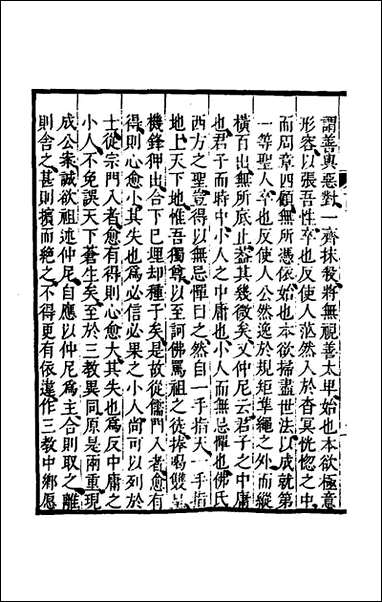 謂善與惡對一齊抹殺將無視善太卑始也本欲極意
形容以張吾性卒也反使人茫然入於杳冥恍惚之中
而周章四顧無所憑依始也本欲掃盡世法以成就第
一等聖人卒也反使人公然逸於規矩準繩之外而縱
橫百出無所底止葢其幾微矣又仲尼云君子之中庸
也君子而時中小人之中庸也小人而無忌憚也佛氏
西方之聖豈得以無忌憚目之然自一手指天一手指
地上天下地惟吾獨尊以至訶佛罵祖之徒捧喝雙呈
機鋒狎出合下已埋却種子矣是故從儒門入者愈有
得則心愈小其失也為必信必果之小人尚可以列於
士從宗門入者愈有得則心愈大其失也為反中庸之
小人不免誤天下蒼生矣至於三教異同原是兩重現
成公案誠欲祖述仲尼自應以仲尼為主合則取之離
則舍之甚則擯而絶之不得更有依違作三教中鄉愿